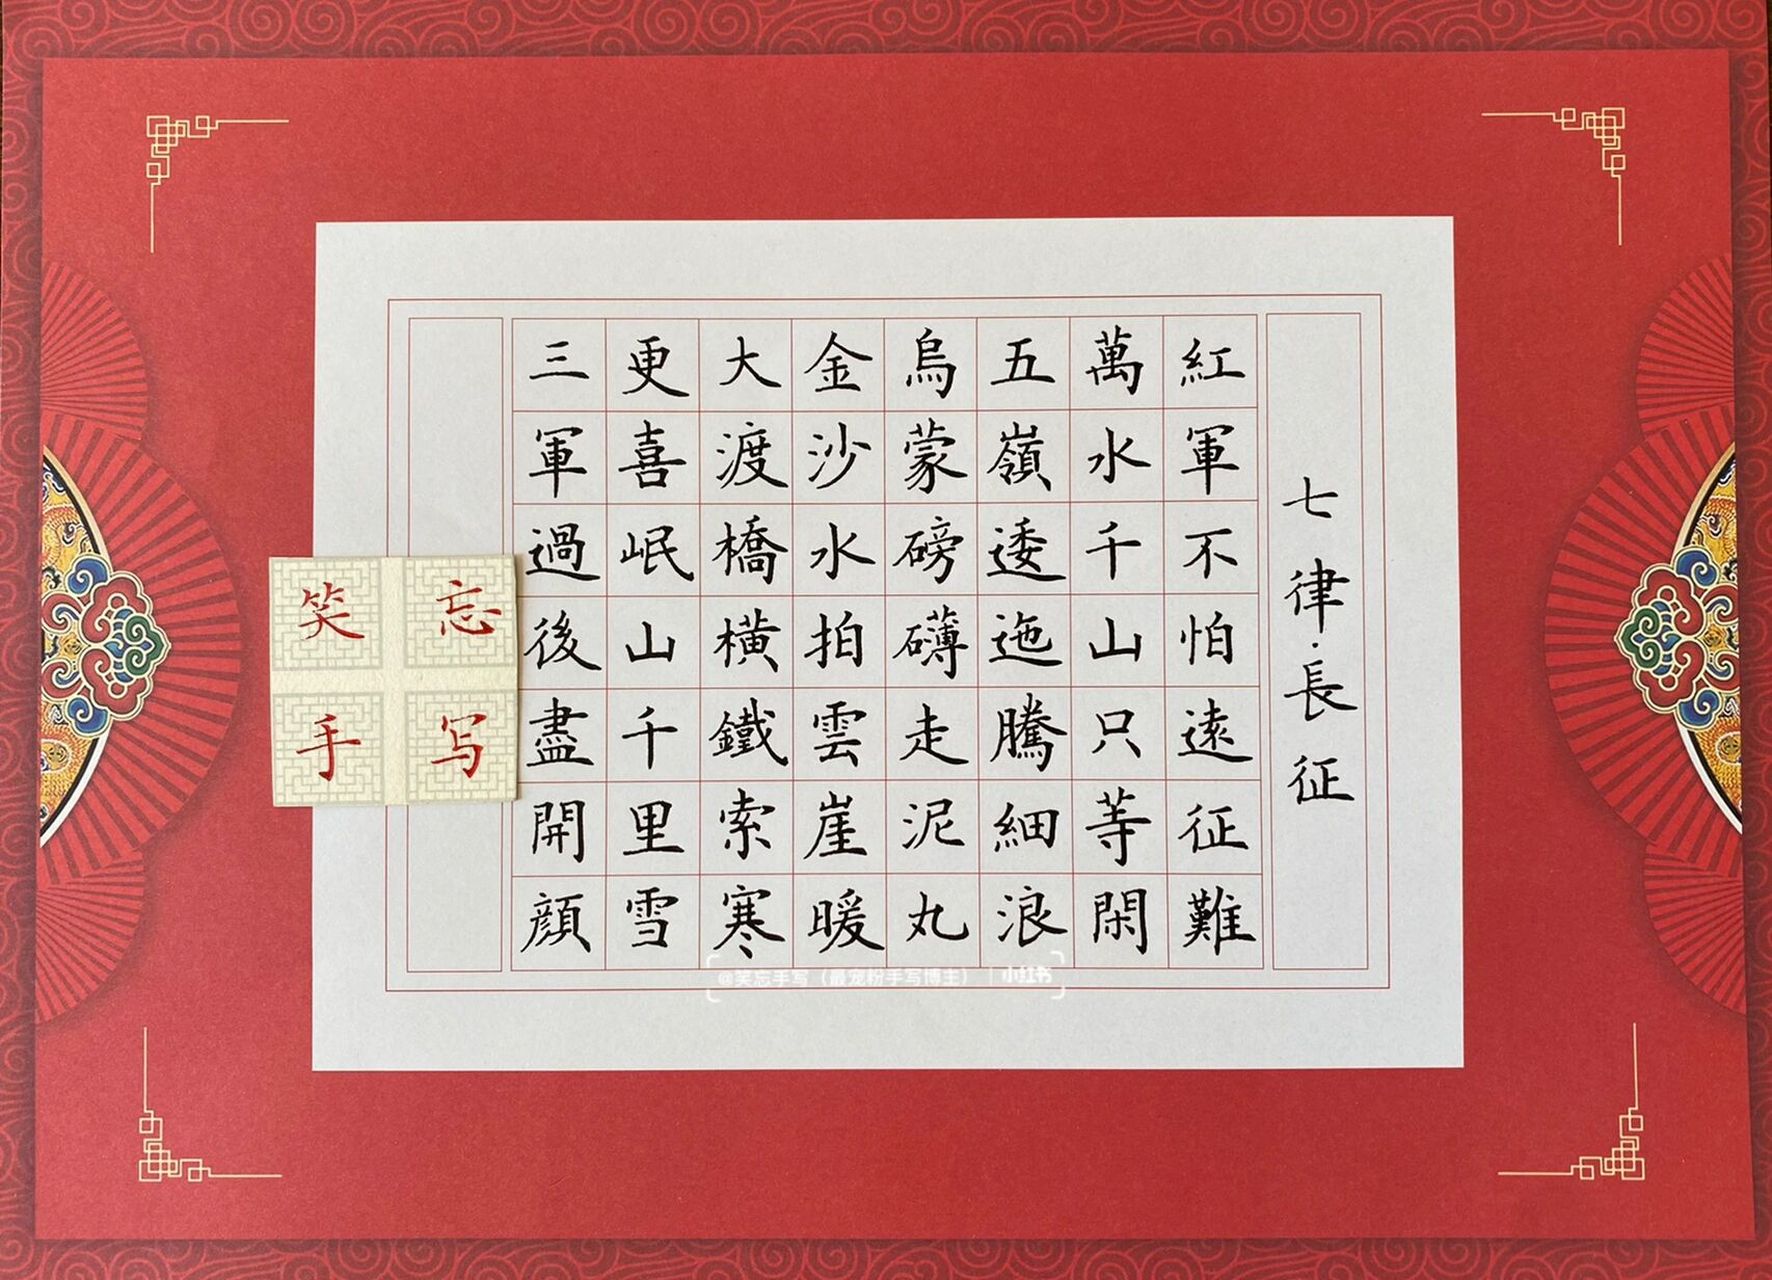 七律·長征
紅軍不怕遠征難
萬水千山只等閑
五嶺逶迤騰細浪
烏蒙磅礴走泥丸
金沙水拍雲崖暖
大渡橋橫鐵索寒
更喜岷山千里雪
三軍過後盡開顔
笑忘
手写
@笑忘手写（最宠粉手写博主）｜小红书